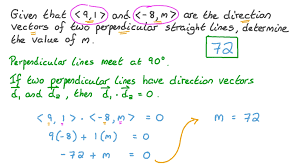 Given that <9,1> and <-8,m> are the direction
vectors of two perpendicular straight lines, determine
the value of m.
72
Perpendicular lines meet at 90°.
If two perpendicular lines have direction vectors
d₁ and d₂, then d₁ · d₂ = 0.
<9,1> · <-8,m> = 0
9(-8) + 1(m) = 0
-72 + m = 0
m = 72